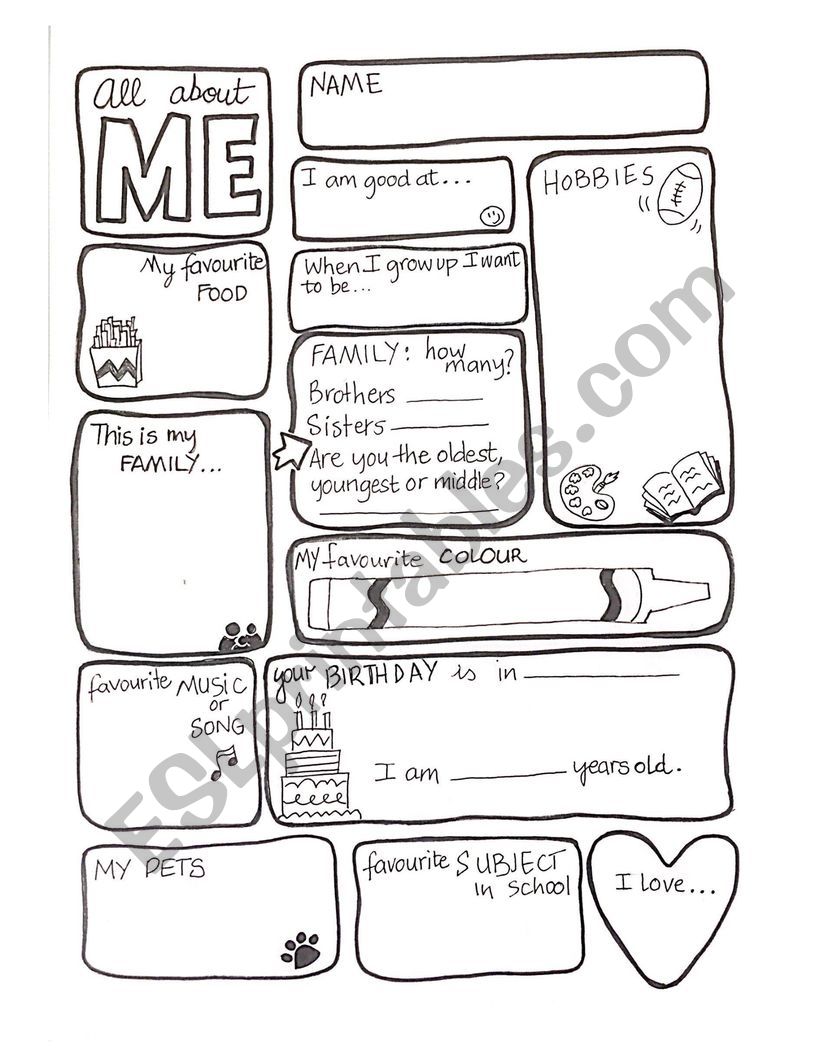 All about
ME
NAME
I am good at...
HOBBIES
My favourite
FOOD
When I grow up I want
to be...
FAMILY: how
many?
Brothers ________
Sisters ________
Are you the oldest,
youngest or middle?
________
This is my
FAMILY...
MY favourite COLOUR
favourite MUSIC
or
SONG
your BIRTHDAY is in ________
I am ________ years old.
MY PETS
favourite SUBJECT
in school
I love...
ESLprintables.com